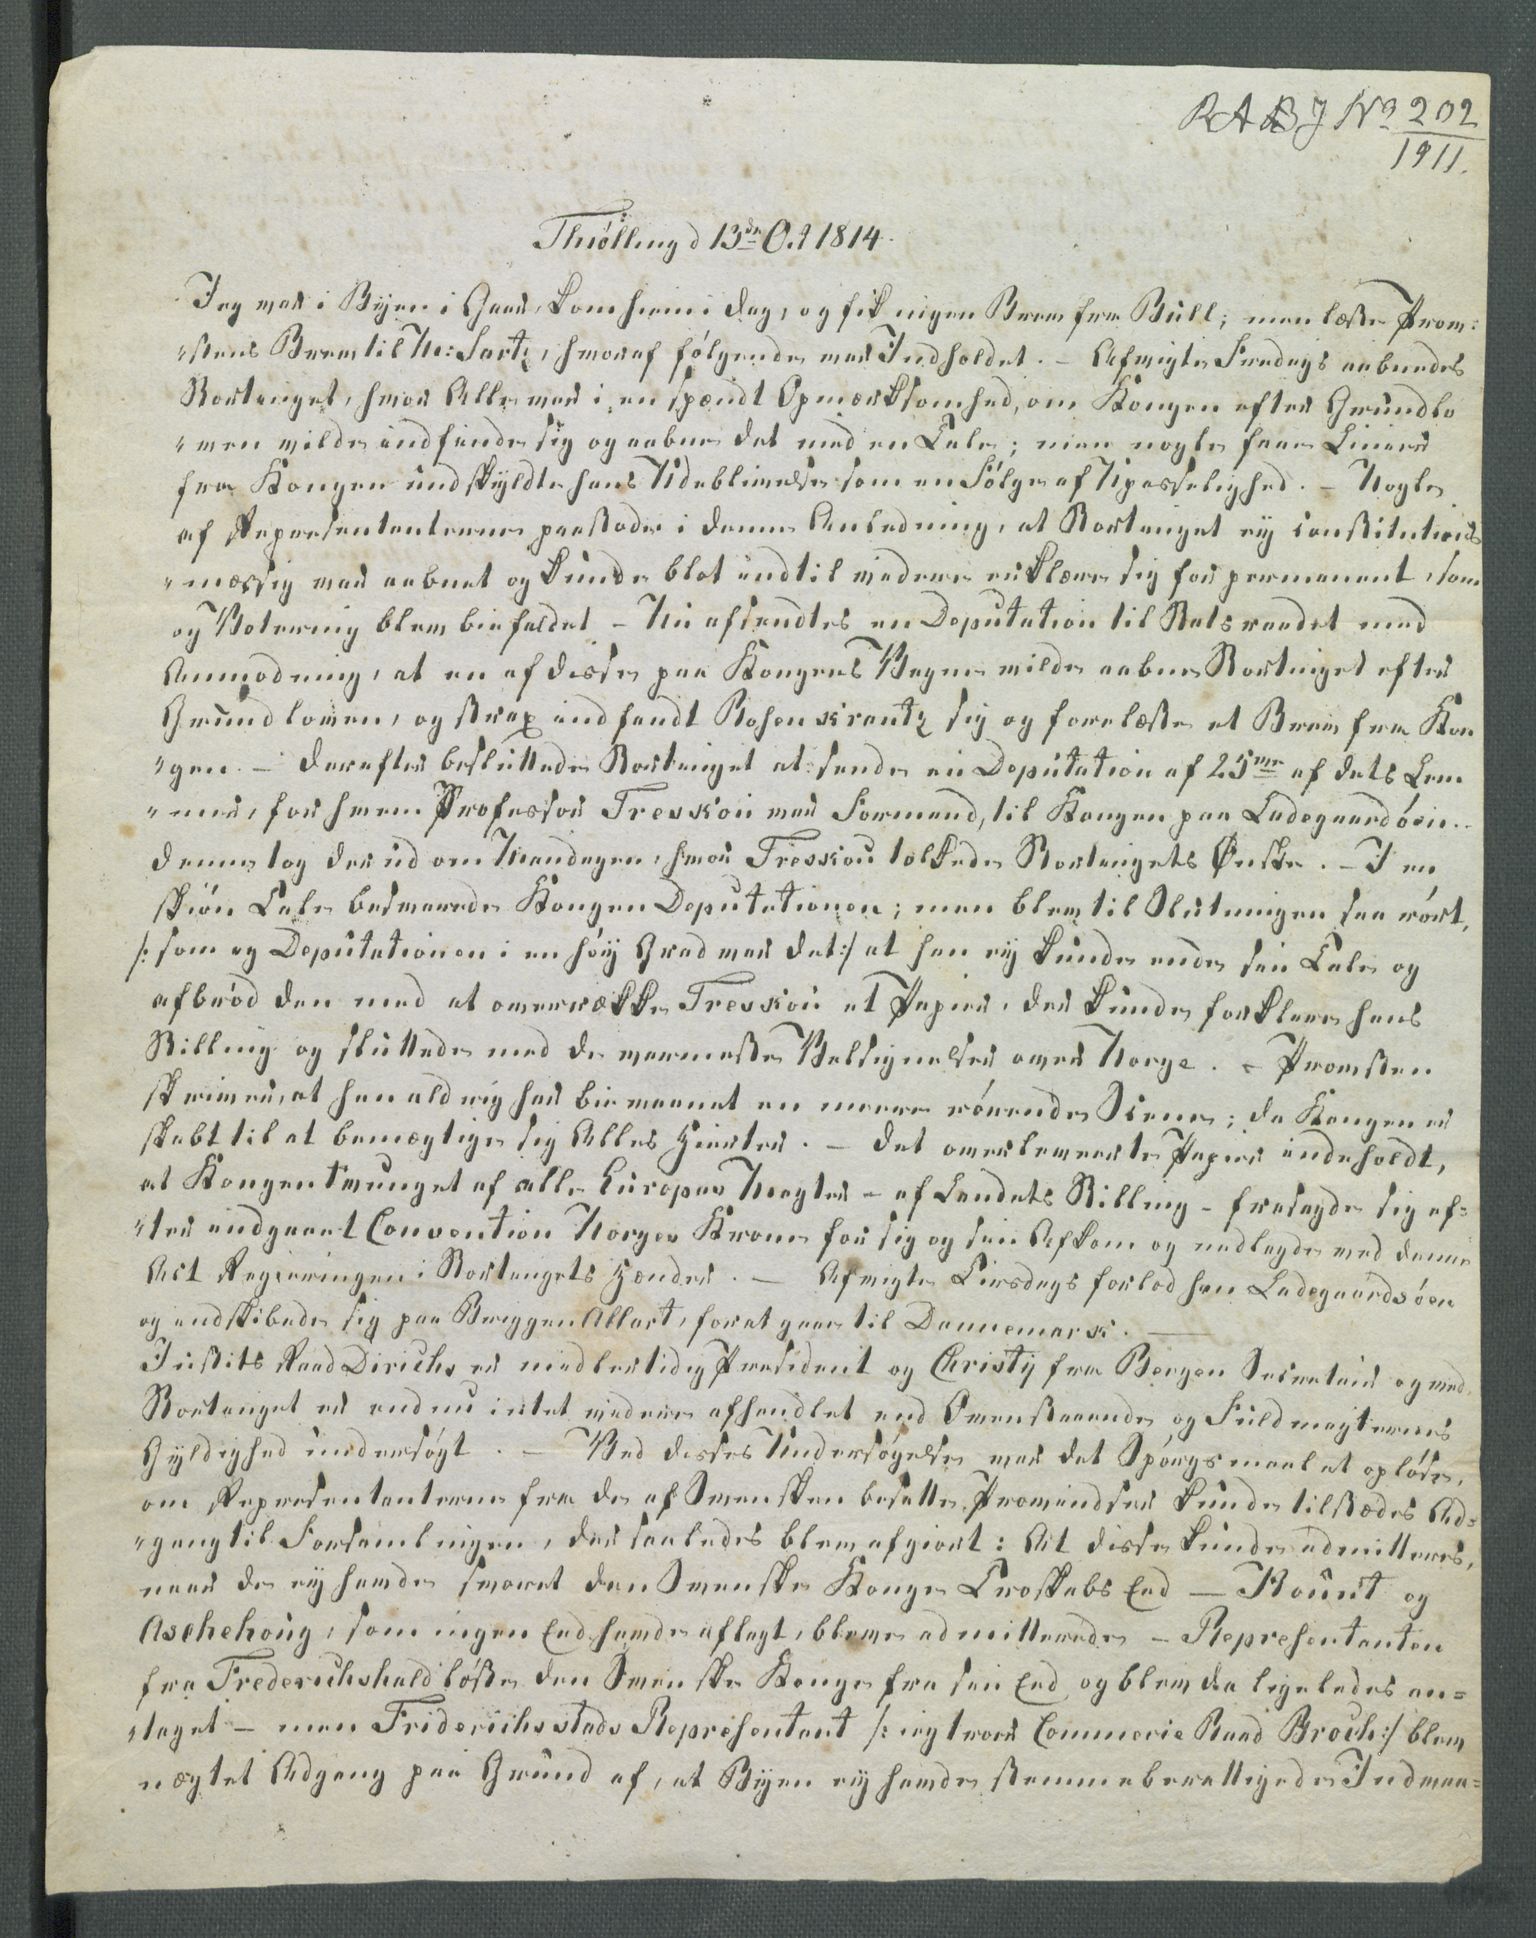 RABJ No 202
1911.
Thiølling d 13de Oct 1814.
Jeg var i Byen i Gaar, kom hiem i dag, og fik ingen Brev fra Bull; men læste Prov:
"stens Brev til M: Sartz, hvoraf følgende var Indholdet. – Afvigte Fredags aabnedes
Stortinget, hvor Alle var i en spændt Opmærksomhed, om Kongen efter Grundlo
"ven vilde indfinde sig og aabne det med en Tale; men nogle faae Linier
fra Kongen undskyldte hans Udeblivelse som en Følge af Upasselighed. – Nogle
af Representanterne paastode i denne Anledning, at Stortinget ey constitutions
"mæssig var aabnet og kunde blot indtil videre erklære sig for permanent, som
og Votering blev biefaldet – Nu afsendtes en Deputation til Statsraadet med
Anmodning, at en af disse paa Kongens Vegne vilde aabne Stortinget efter
Grundloven, og strax indfandt Rosenkrantz sig og forelæste et Brev fra Kon
"gen. – Derefter besluttede Stortinget at sende en Deputation af 25ve af dets Lem
"mer, for hvem Professor Treskou var Formand, til Kongen paa Ladegaardsøen. –
Denne tog der ud om Mandagen, hvor Treskou tolkede Stortingets Ønske. – I en
skiøn Tale besvarede Kongen Deputationen; men blev til Slutningen saa rørt,
/: som og Deputationen i en høy Grad var det:/ at han ey kunde ende sin Tale og
afbrød den med at overrække Treskou et Papir, der kunde forklare hans
Stilling og sluttede med de varmeste Velsignelser over Norge. – Provsten
skriver, at han aldrig har bievaanet en mere rørende Scene; da Kongen er
skabt til at bemægtige sig Alles Hierter. – Det overleverte Papir indeholdt,
at Kongen tvunget af alle Europas Magter – af Landets Stilling – frasagde sig ef=
"ter indgaaet Convention Norges Krone for sig og sin Afkom og nedlagde med denne
Act Regieringen i Stortingets Hænder. – Afvigte Tirsdags forlod han Ladegaardsøen
og indskibede sig paa Briggen Allart, for at gaae til Dannemark. –
Justits Raad Dirichs er midlertidig President og Christy fra Bergen Secretair og ved
Stortinget er endnu intet videre afhandlet end Ovenstaaende og Fuldmagternes
Gyldighed undersøgt. – Ved disses Undersøgelse var det Spørgsmaal at opløse,
om Representanterne fra de af Svensken besatte Provindser kunde tilstædes Ad=
"gang til Forsamlingen, der saaledes blev afgiort: At disse kunde admitteres,
naar de ey havde svoret den Svenske Konge Troskabs Eed – Kount og
Aschehoug, som ingen Eed havde aflagt, bleve admitterede – Representanten
fra Frederichshald løste den Svenske Konge fra sin Eed og blev da ligeledes an=
"taget – men Friderichsstads Representant /: jeg troer Commerce Raad Broch:/ blev
nægtet Adgang paa Grund af, at Byen ey havde stemmeberettigede Indvaa=